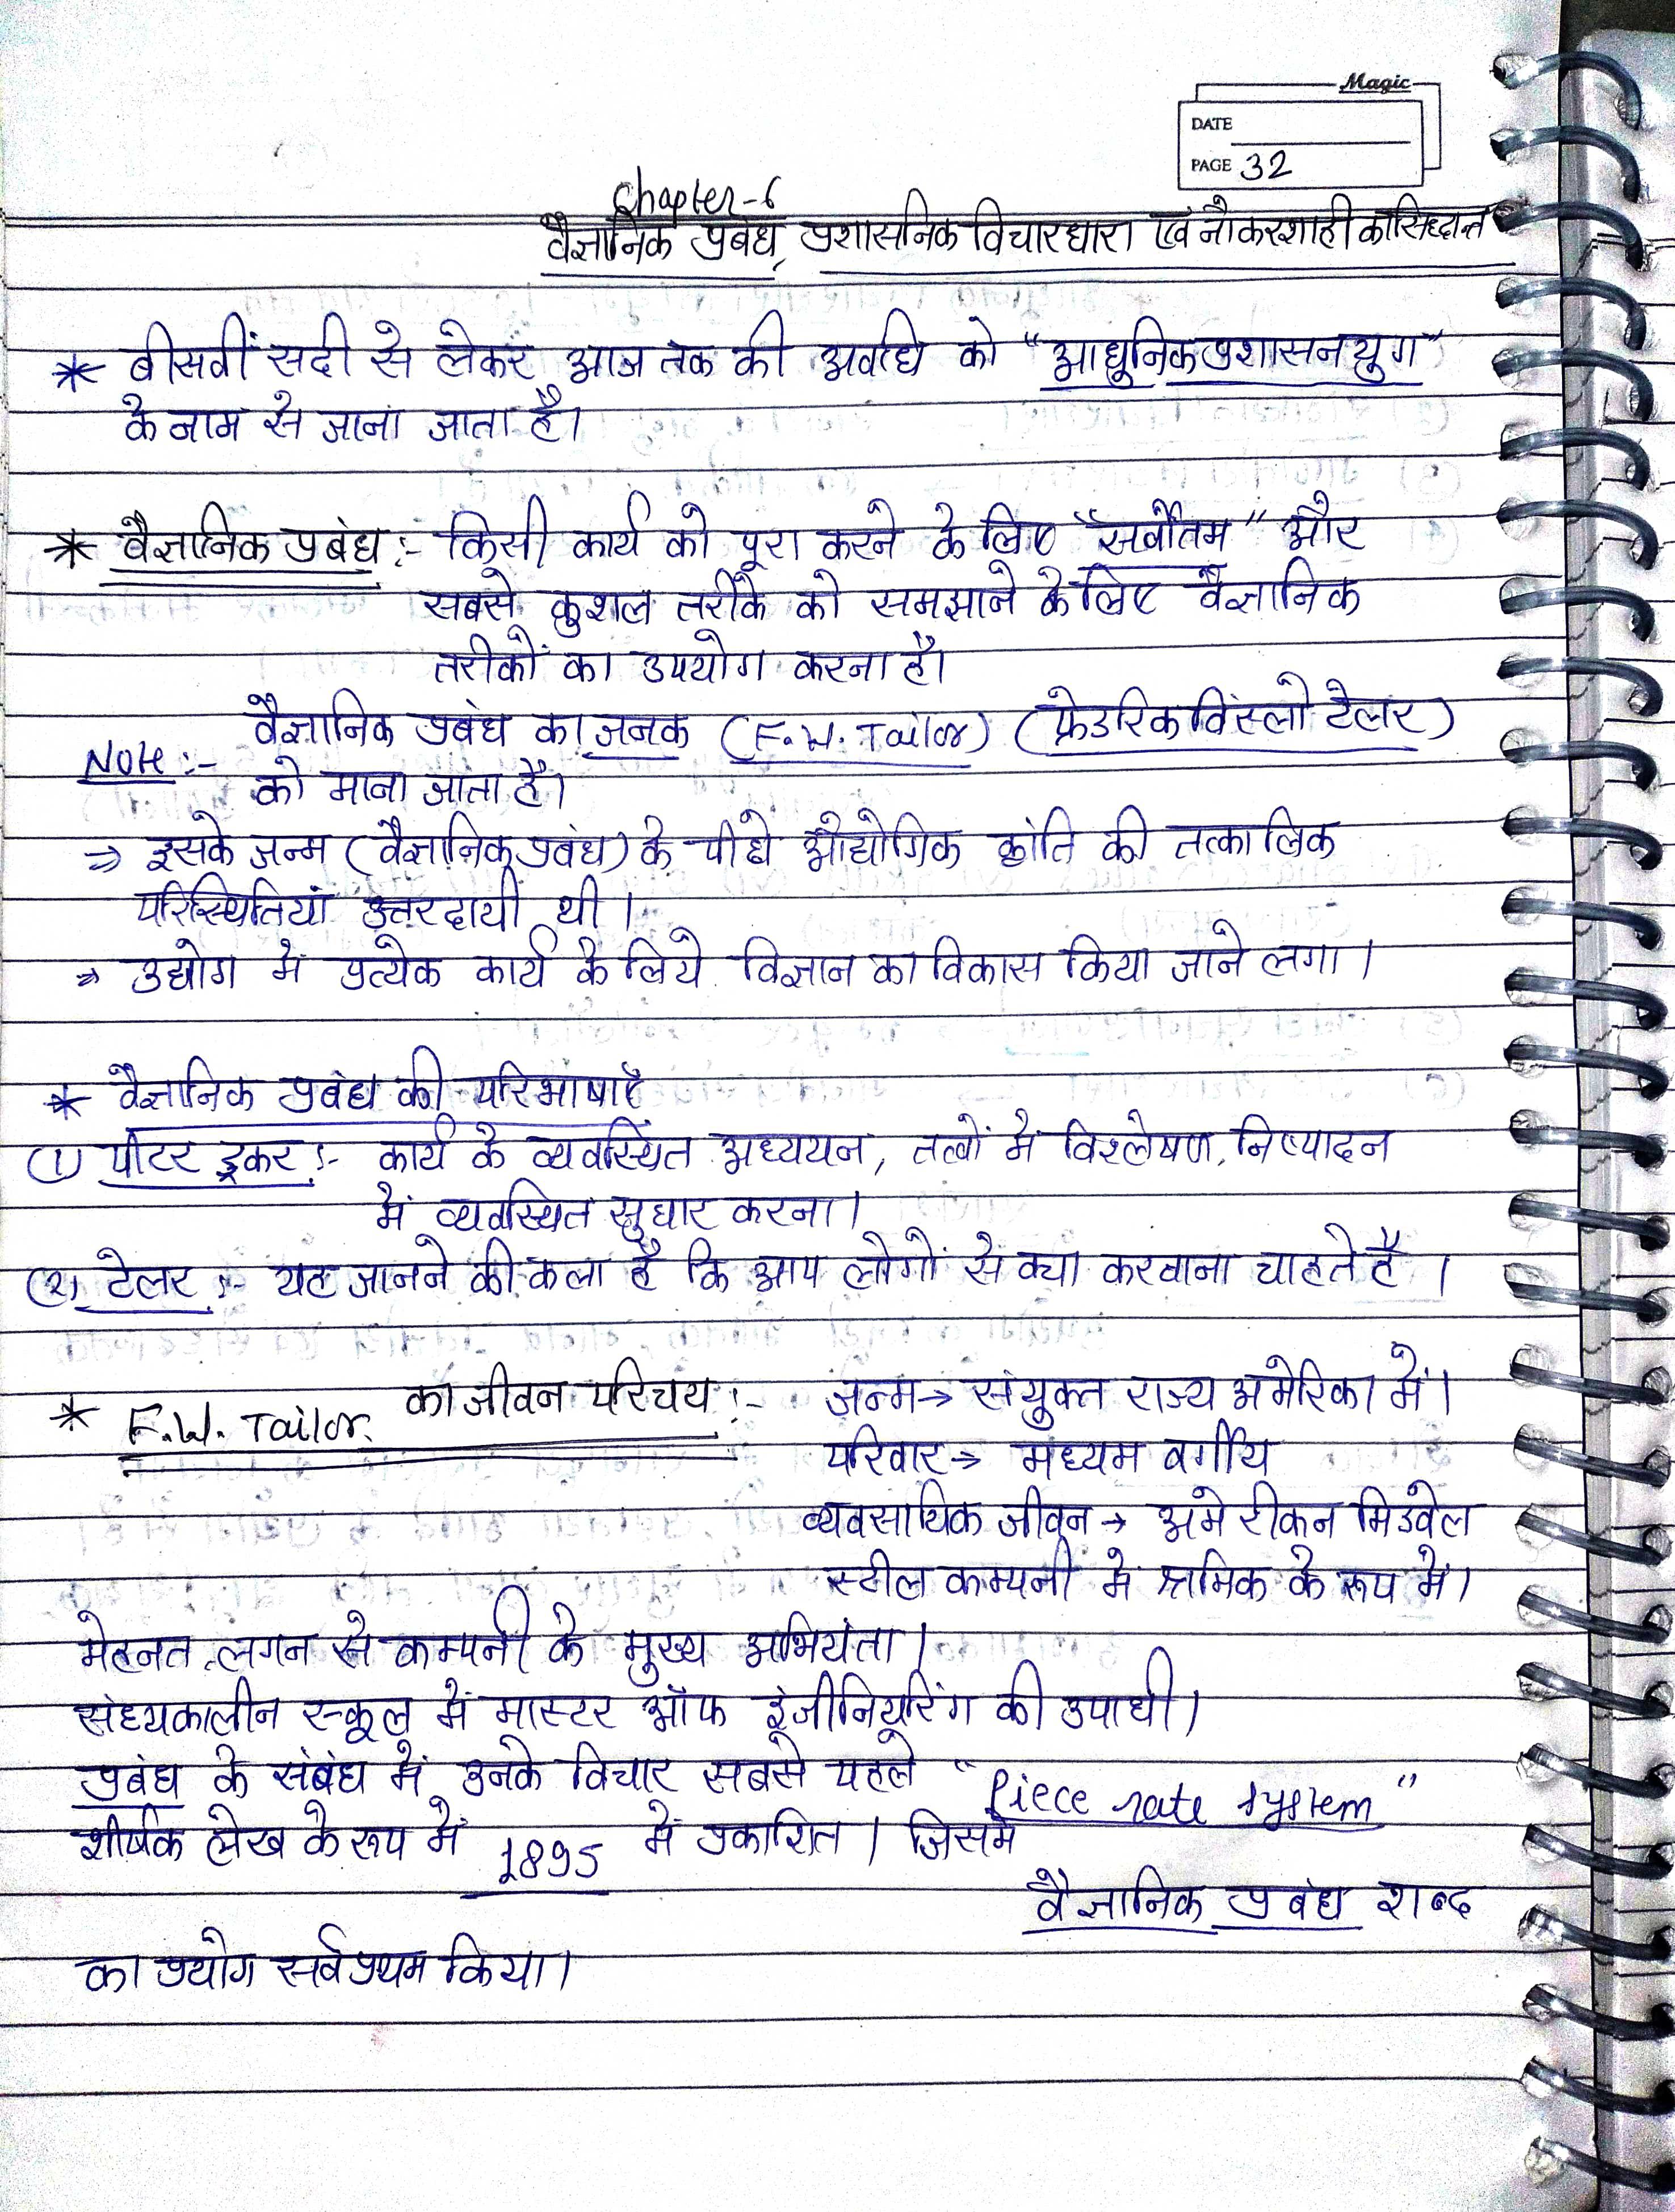 Magic
DATE
PAGE 32
Chapter-6
वैज्ञानिक प्रबंध, प्रशासनिक विचारधारा एवं नौकरशाही का सिद्धान्त
* बीसवीं सदी से लेकर आज तक की अवधि को "आधुनिक प्रशासन युग"
के नाम से जाना जाता है।
* वैज्ञानिक प्रबंध :- किसी कार्य को पूरा करने के लिए "सर्वोतम" और
सबसे कुशल तरीके को समझाने के लिए वैज्ञानिक
तरीकों का उपयोग करना है।
वैज्ञानिक प्रबंध का जनक (F.W. Tailor) (फ्रेडरिक विंस्लो टेलर)
Note :- को माना जाता है।
⇒ इसके जन्म (वैज्ञानिक प्रबंध) के पीछे औद्योगिक क्रांति की तत्कालिक
परिस्थितियां उत्तरदायी थी।
⇒ उद्योग में प्रत्येक कार्य के लिये विज्ञान का विकास किया जाने लगा।
* वैज्ञानिक प्रबंध की परिभाषाएँ
(1) पीटर ड्रकर :- कार्य के व्यवस्थित अध्ययन, तत्वों में विश्लेषण, निष्पादन
में व्यवस्थित सुधार करना।
(2) टेलर :- यह जानने की कला है कि आप लोगों से क्या करवाना चाहते है।
* F.W. Tailor का जीवन परिचय :- जन्म → संयुक्त राज्य अमेरिका में।
परिवार → मध्यम वर्गीय
व्यवसायिक जीवन → अमेरीकन मिडवेल
स्टील कम्पनी में श्रमिक के रूप में।
मेहनत, लगन से कम्पनी के मुख्य अभियंता।
संध्यकालीन स्कूल में मास्टर ऑफ इंजीनियरिंग की उपाधी।
प्रबंध के संबंध में उनके विचार सबसे पहले "Piece rate system"
शीर्षक लेख के रूप में 1895 में प्रकाशित। जिसमें
वैज्ञानिक प्रबंध शब्द
का प्रयोग सर्वप्रथम किया।